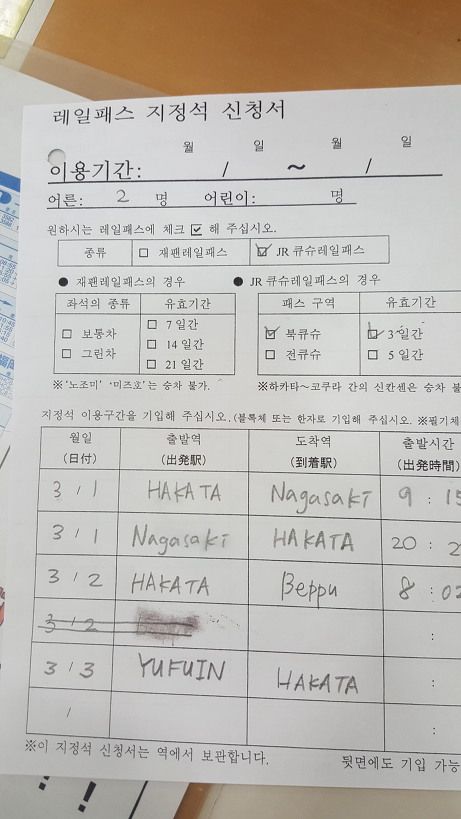 레일패스 지정석 신청서
월 일 월 일
이용기간: / ~ /
어른: 2 명 어린이: 명
원하시는 레일패스에 체크 ☑ 해 주십시오.
종류 □ 재팬레일패스 ☑ JR 큐슈레일패스
● 재팬레일패스의 경우 ● JR 큐슈레일패스의 경우
좌석의 종류 유효기간 패스 구역 유효기간
□ 보통차 □ 7 일간 ☑ 북큐슈 ☑ 3 일간
□ 그린차 □ 14 일간 □ 전큐슈 □ 5 일간
□ 21 일간
※'노조미' '미즈호'는 승차 불가. ※하카타~코쿠라 간의 신칸센은 승차 불
지정석 이용구간을 기입해 주십시오.(블록체 또는 한자로 기입해 주십시오. ※필기체
월일 출발역 도착역 출발시간
(日付) (出発駅) (到着駅) (出発時間)
3 / 1 HAKATA Nagasaki 9 : 15
3 / 1 Nagasaki HAKATA 20 : 2
3 / 2 HAKATA Beppu 8 : 02
3 / 2 :
3 / 3 YUFUIN HAKATA :
/ :
※이 지정석 신청서는 역에서 보관합니다. 뒷면에도 기입 가능